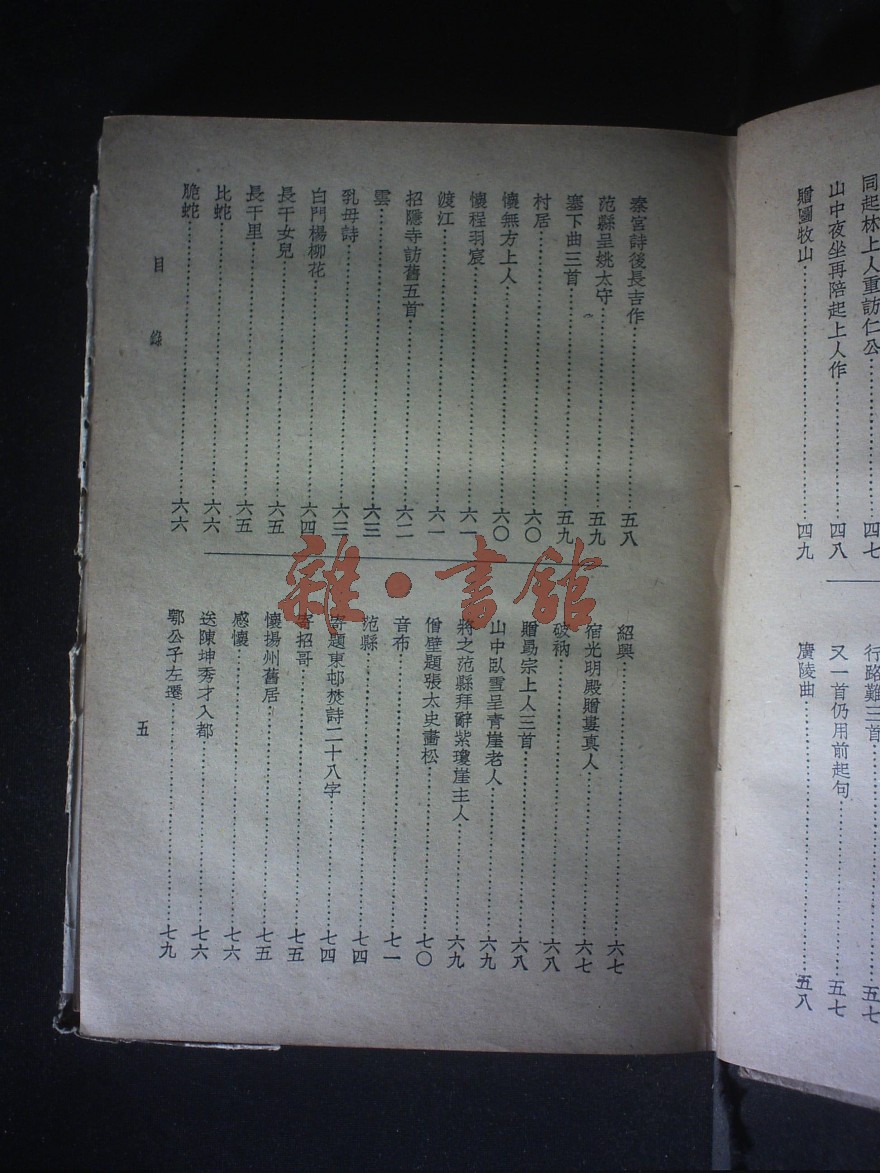 同起林上人重訪仁公⋯⋯四七
山中夜坐再陪起上人作⋯⋯四八
贈圖牧山⋯⋯四九
行路難三首⋯⋯五七
又一首仍用前起句⋯⋯五七
廣陵曲⋯⋯五八
秦宮詩後長吉作⋯⋯五八
范縣呈姚太守⋯⋯五九
塞下曲三首⋯⋯五九
村居⋯⋯六〇
懷無方上人⋯⋯六〇
懷程羽宸⋯⋯六一
渡江⋯⋯六一
招隱寺訪舊五首⋯⋯六二
雲⋯⋯六三
乳母詩⋯⋯六三
白門楊柳花⋯⋯六四
長干女兒⋯⋯六五
長干里⋯⋯六五
比蛇⋯⋯六六
脆蛇⋯⋯六六
紹興⋯⋯六七
宿光明殿贈婁真人⋯⋯六七
破衲⋯⋯六八
贈勗宗上人三首⋯⋯六八
山中臥雪呈青崖老人⋯⋯六九
將之范縣拜辭紫瓊崖主人⋯⋯六九
僧壁題張太史畫松⋯⋯七〇
音布⋯⋯七一
范縣⋯⋯七四
寄題東邨焚詩二十八字⋯⋯七四
寄招哥⋯⋯七五
懷揚州舊居⋯⋯七五
感懷⋯⋯七六
送陳坤秀才入都⋯⋯七六
鄂公子左遷⋯⋯七九
目錄
五
雜·書館